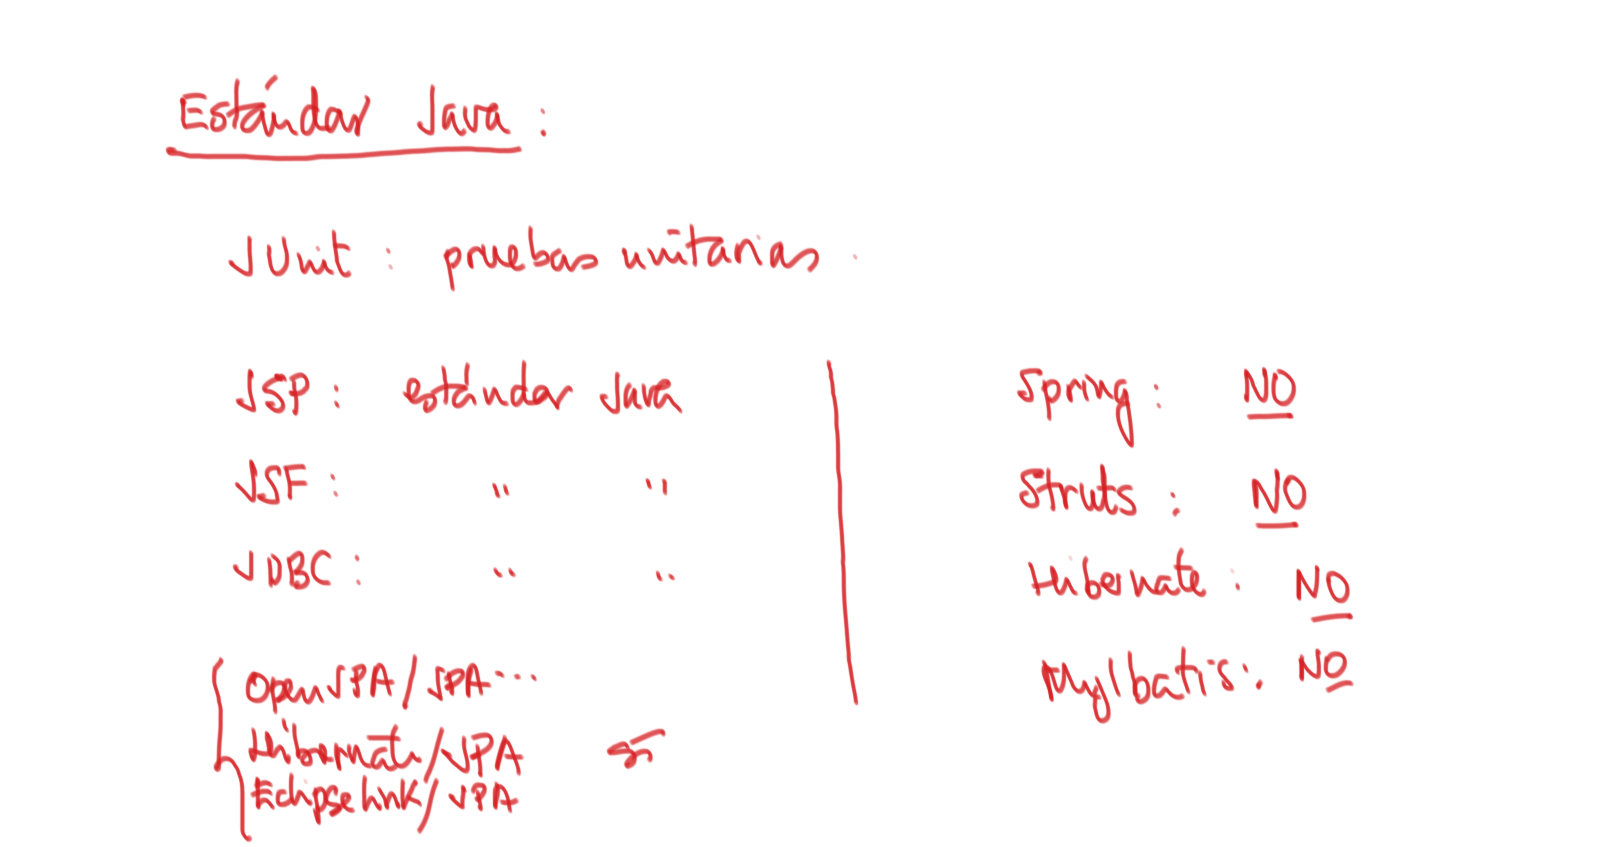 Estándar Java :
JUnit : pruebas unitarias
JSP : estándar Java
JSF : " "
JDBC : " "
OpenJPA/JPA...
Hibernate/JPA sí
Eclipselink/JPA
Spring : NO
Struts : NO
Hibernate : NO
MyIbatis : NO